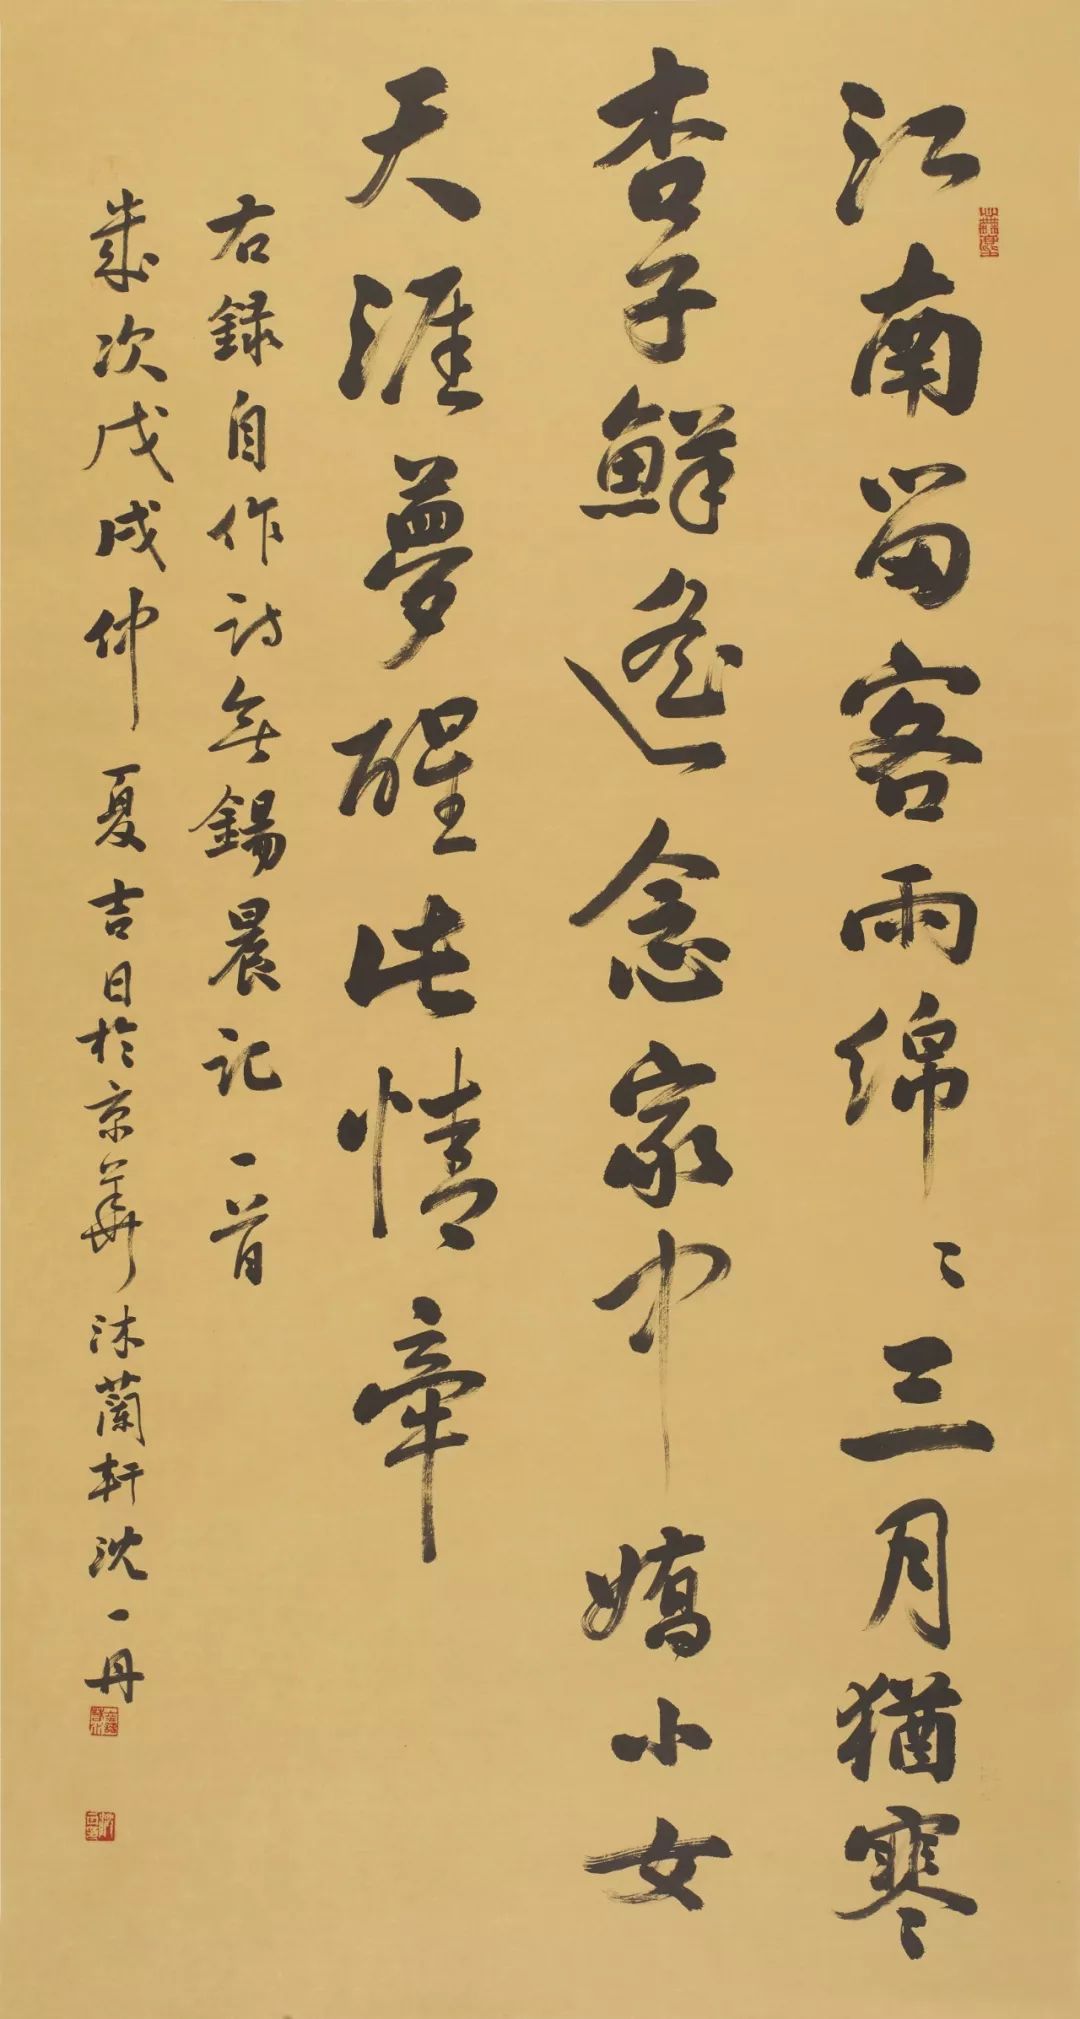 江南留客雨綿〻三月猶寒
杏子鮮遙念家中嬌小女
天涯夢醒此情牽
右録自作詩無錫晨記一首
歲次戊戌仲夏吉日於京華沐蘭軒沈一丹